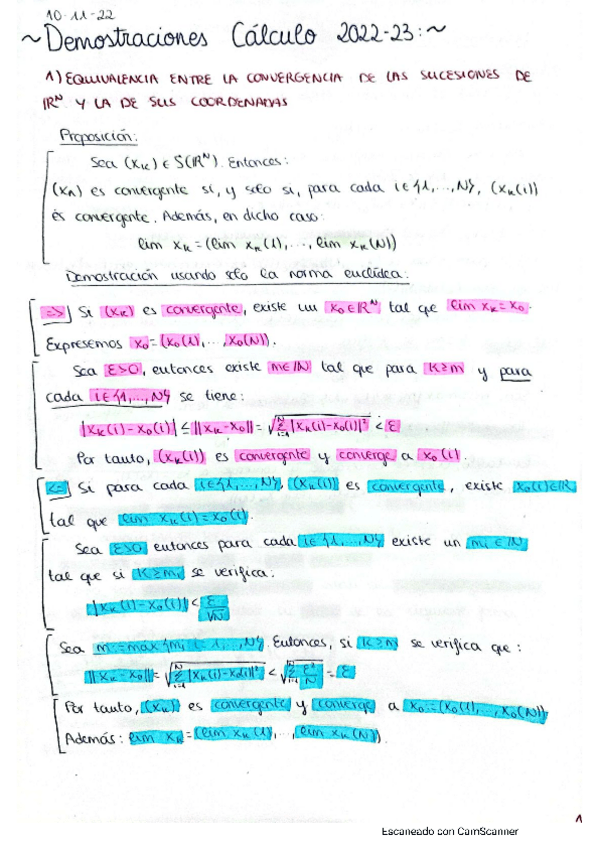 10-11-22
~Demostraciones Cálculo 2022-23:~
1) EQUIVALENCIA ENTRE LA CONVERGENCIA DE LAS SUCESIONES DE
IRᴺ Y LA DE SUS COORDENADAS
Proposición:
Sea (xₖ) ∈ S(IRᴺ). Entonces:
(xₖ) es convergente si, y sólo si, para cada i∈{1,...,N}, (xₖ(i))
es convergente. Además, en dicho caso:
lim xₖ = (lim xₖ(1), ..., lim xₖ(N))
Demostración usando sólo la norma euclídea:
=>] Si (xₖ) es convergente, existe un x₀∈IRᴺ tal que lim xₖ = x₀.
Expresemos x₀=(x₀(1),...,x₀(N)).
Sea ε>0, entonces existe m∈IN tal que para k≥m y para
cada i∈{1,...,N} se tiene:
|xₖ(i)-x₀(i)| ≤ ||xₖ-x₀|| = √(∑ᵢ₌₁ᴺ |xₖ(i)-x₀(i)|²) < ε
Por tanto, (xₖ(i)) es convergente y converge a x₀(i).
<=] Si para cada i∈{1,...,N}, (xₖ(i)) es convergente, existe x₀(i)∈IR
tal que lim xₖ(i)=x₀(i).
Sea ε>0 entonces para cada i∈{1,...,N} existe un mᵢ∈IN
tal que si k≥mᵢ se verifica:
|xₖ(i)-x₀(i)| < ε/√N
Sea m:=max{mᵢ: i=1,...,N}. Entonces, si k≥m se verifica que:
||xₖ-x₀|| = √(∑ᵢ₌₁ᴺ |xₖ(i)-x₀(i)|²) < √(∑ᵢ₌₁ᴺ ε²/N) = ε
Por tanto, (xₖ) es convergente y converge a x₀:=(x₀(1),...,x₀(N)).
Además: lim xₖ = (lim xₖ(1), ..., lim xₖ(N)).
1
Escaneado con CamScanner